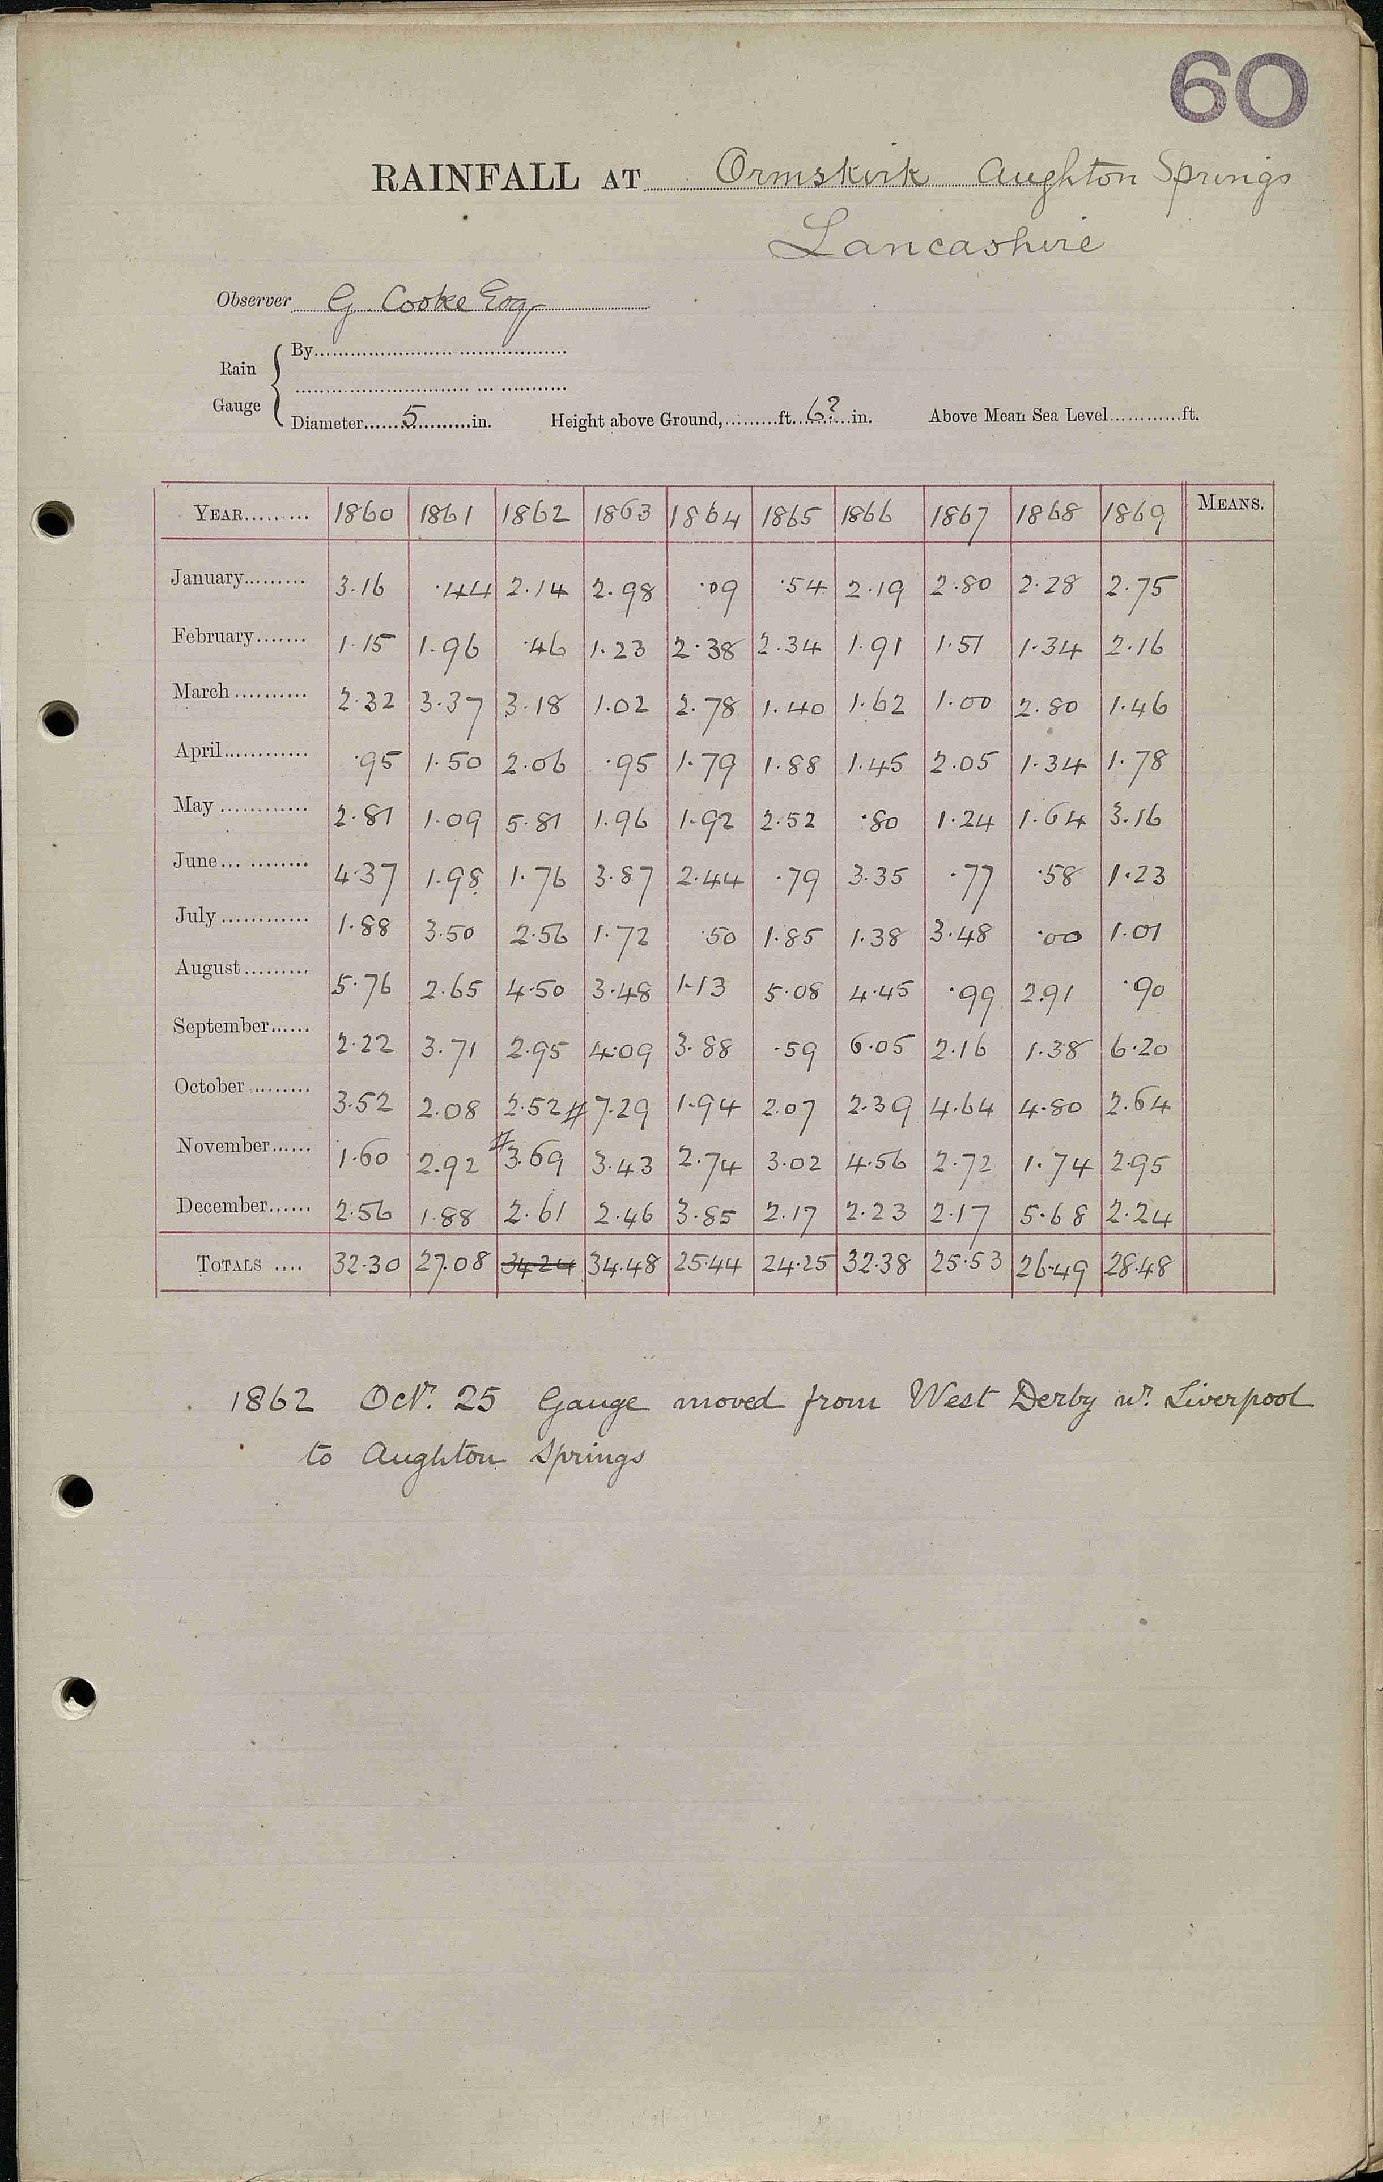 60
RAINFALL AT Ormskirk Aughton Springs
Lancashire
Observer G. Cooke Esq
Rain Gauge
By
Diameter 5 in. Height above Ground, ft. 6? in. Above Mean Sea Level ft.
YEAR 1860 1861 1862 1863 1864 1865 1866 1867 1868 1869 MEANS.
January 3.16 .44 2.14 2.98 .09 .54 2.19 2.80 2.28 2.75
February 1.15 1.96 .46 1.23 2.38 2.34 1.91 1.51 1.34 2.16
March 2.32 3.37 3.18 1.02 2.78 1.40 1.62 1.00 2.80 1.46
April .95 1.50 2.06 .95 1.79 1.88 1.45 2.05 1.34 1.78
May 2.81 1.09 5.81 1.96 1.92 2.52 .80 1.24 1.64 3.16
June 4.37 1.98 1.76 3.87 2.44 .79 3.35 .77 .58 1.23
July 1.88 3.50 2.56 1.72 .50 1.85 1.38 3.48 .00 1.01
August 5.76 2.65 4.50 3.48 1.13 5.08 4.45 .99 2.91 .90
September 2.22 3.71 2.95 4.09 3.88 .59 6.05 2.16 1.38 6.20
October 3.52 2.08 2.52 # 7.29 1.94 2.07 2.39 4.64 4.80 2.64
November 1.60 2.92 # 3.69 3.43 2.74 3.02 4.56 2.72 1.74 2.95
December 2.56 1.88 2.61 2.46 3.85 2.17 2.23 2.17 5.68 2.24
TOTALS 32.30 27.08 34.24 34.48 25.44 24.25 32.38 25.53 26.49 28.48
1862 Octr. 25 Gauge moved from West Derby nr. Liverpool
to Aughton Springs